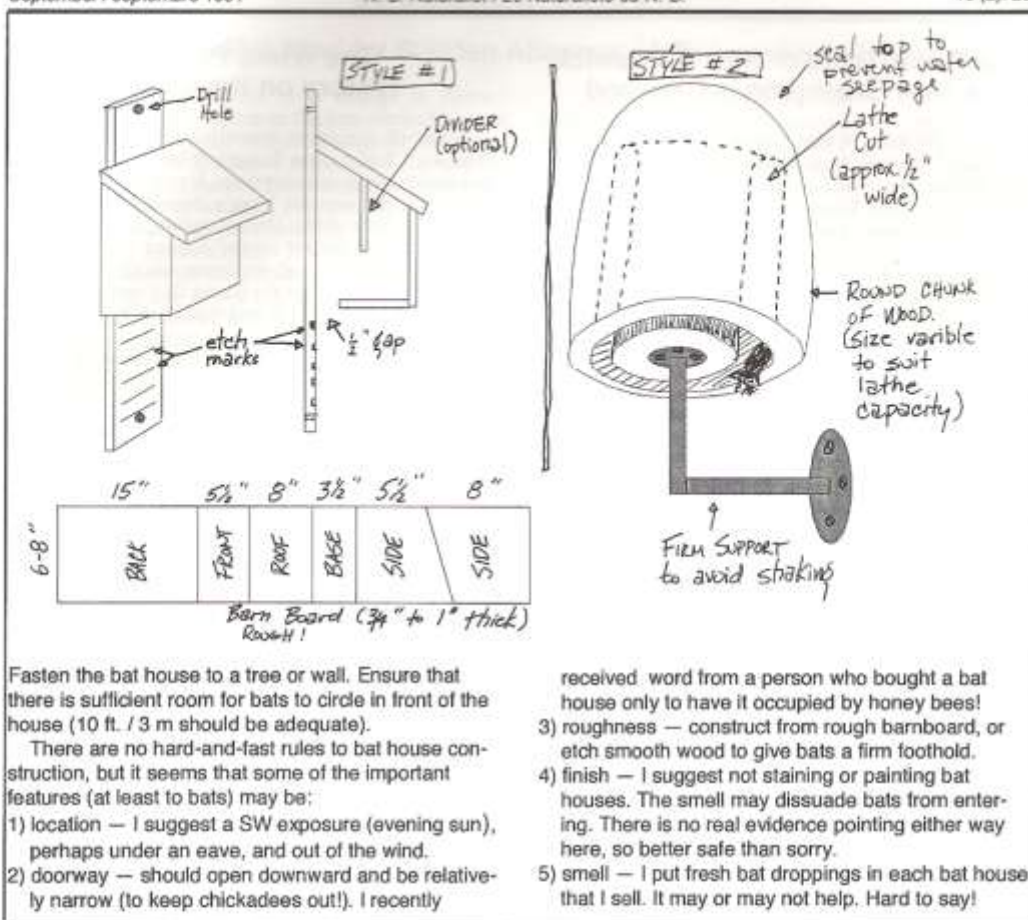 STYLE #1
Drill
Hole
DIVIDER
(optional)
etch
marks
1/2" gap
STYLE #2
seal top to
prevent water
seepage
Lathe
Cut
(approx. 1/2"
wide)
ROUND CHUNK
OF WOOD.
(size varible
to suit
lathe
capacity)
FIRM SUPPORT
to avoid shaking
15" 5½" 8" 3½" 5½" 8"
6-8"
BACK FRONT ROOF BASE SIDE SIDE
Barn Board (3/4" to 1" thick)
ROUGH!
Fasten the bat house to a tree or wall. Ensure that
there is sufficient room for bats to circle in front of the
house (10 ft. / 3 m should be adequate).
There are no hard-and-fast rules to bat house con-
struction, but it seems that some of the important
features (at least to bats) may be:
1) location — I suggest a SW exposure (evening sun),
perhaps under an eave, and out of the wind.
2) doorway — should open downward and be relative-
ly narrow (to keep chickadees out!). I recently
received word from a person who bought a bat
house only to have it occupied by honey bees!
3) roughness — construct from rough barnboard, or
etch smooth wood to give bats a firm foothold.
4) finish — I suggest not staining or painting bat
houses. The smell may dissuade bats from enter-
ing. There is no real evidence pointing either way
here, so better safe than sorry.
5) smell — I put fresh bat droppings in each bat house
that I sell. It may or may not help. Hard to say!